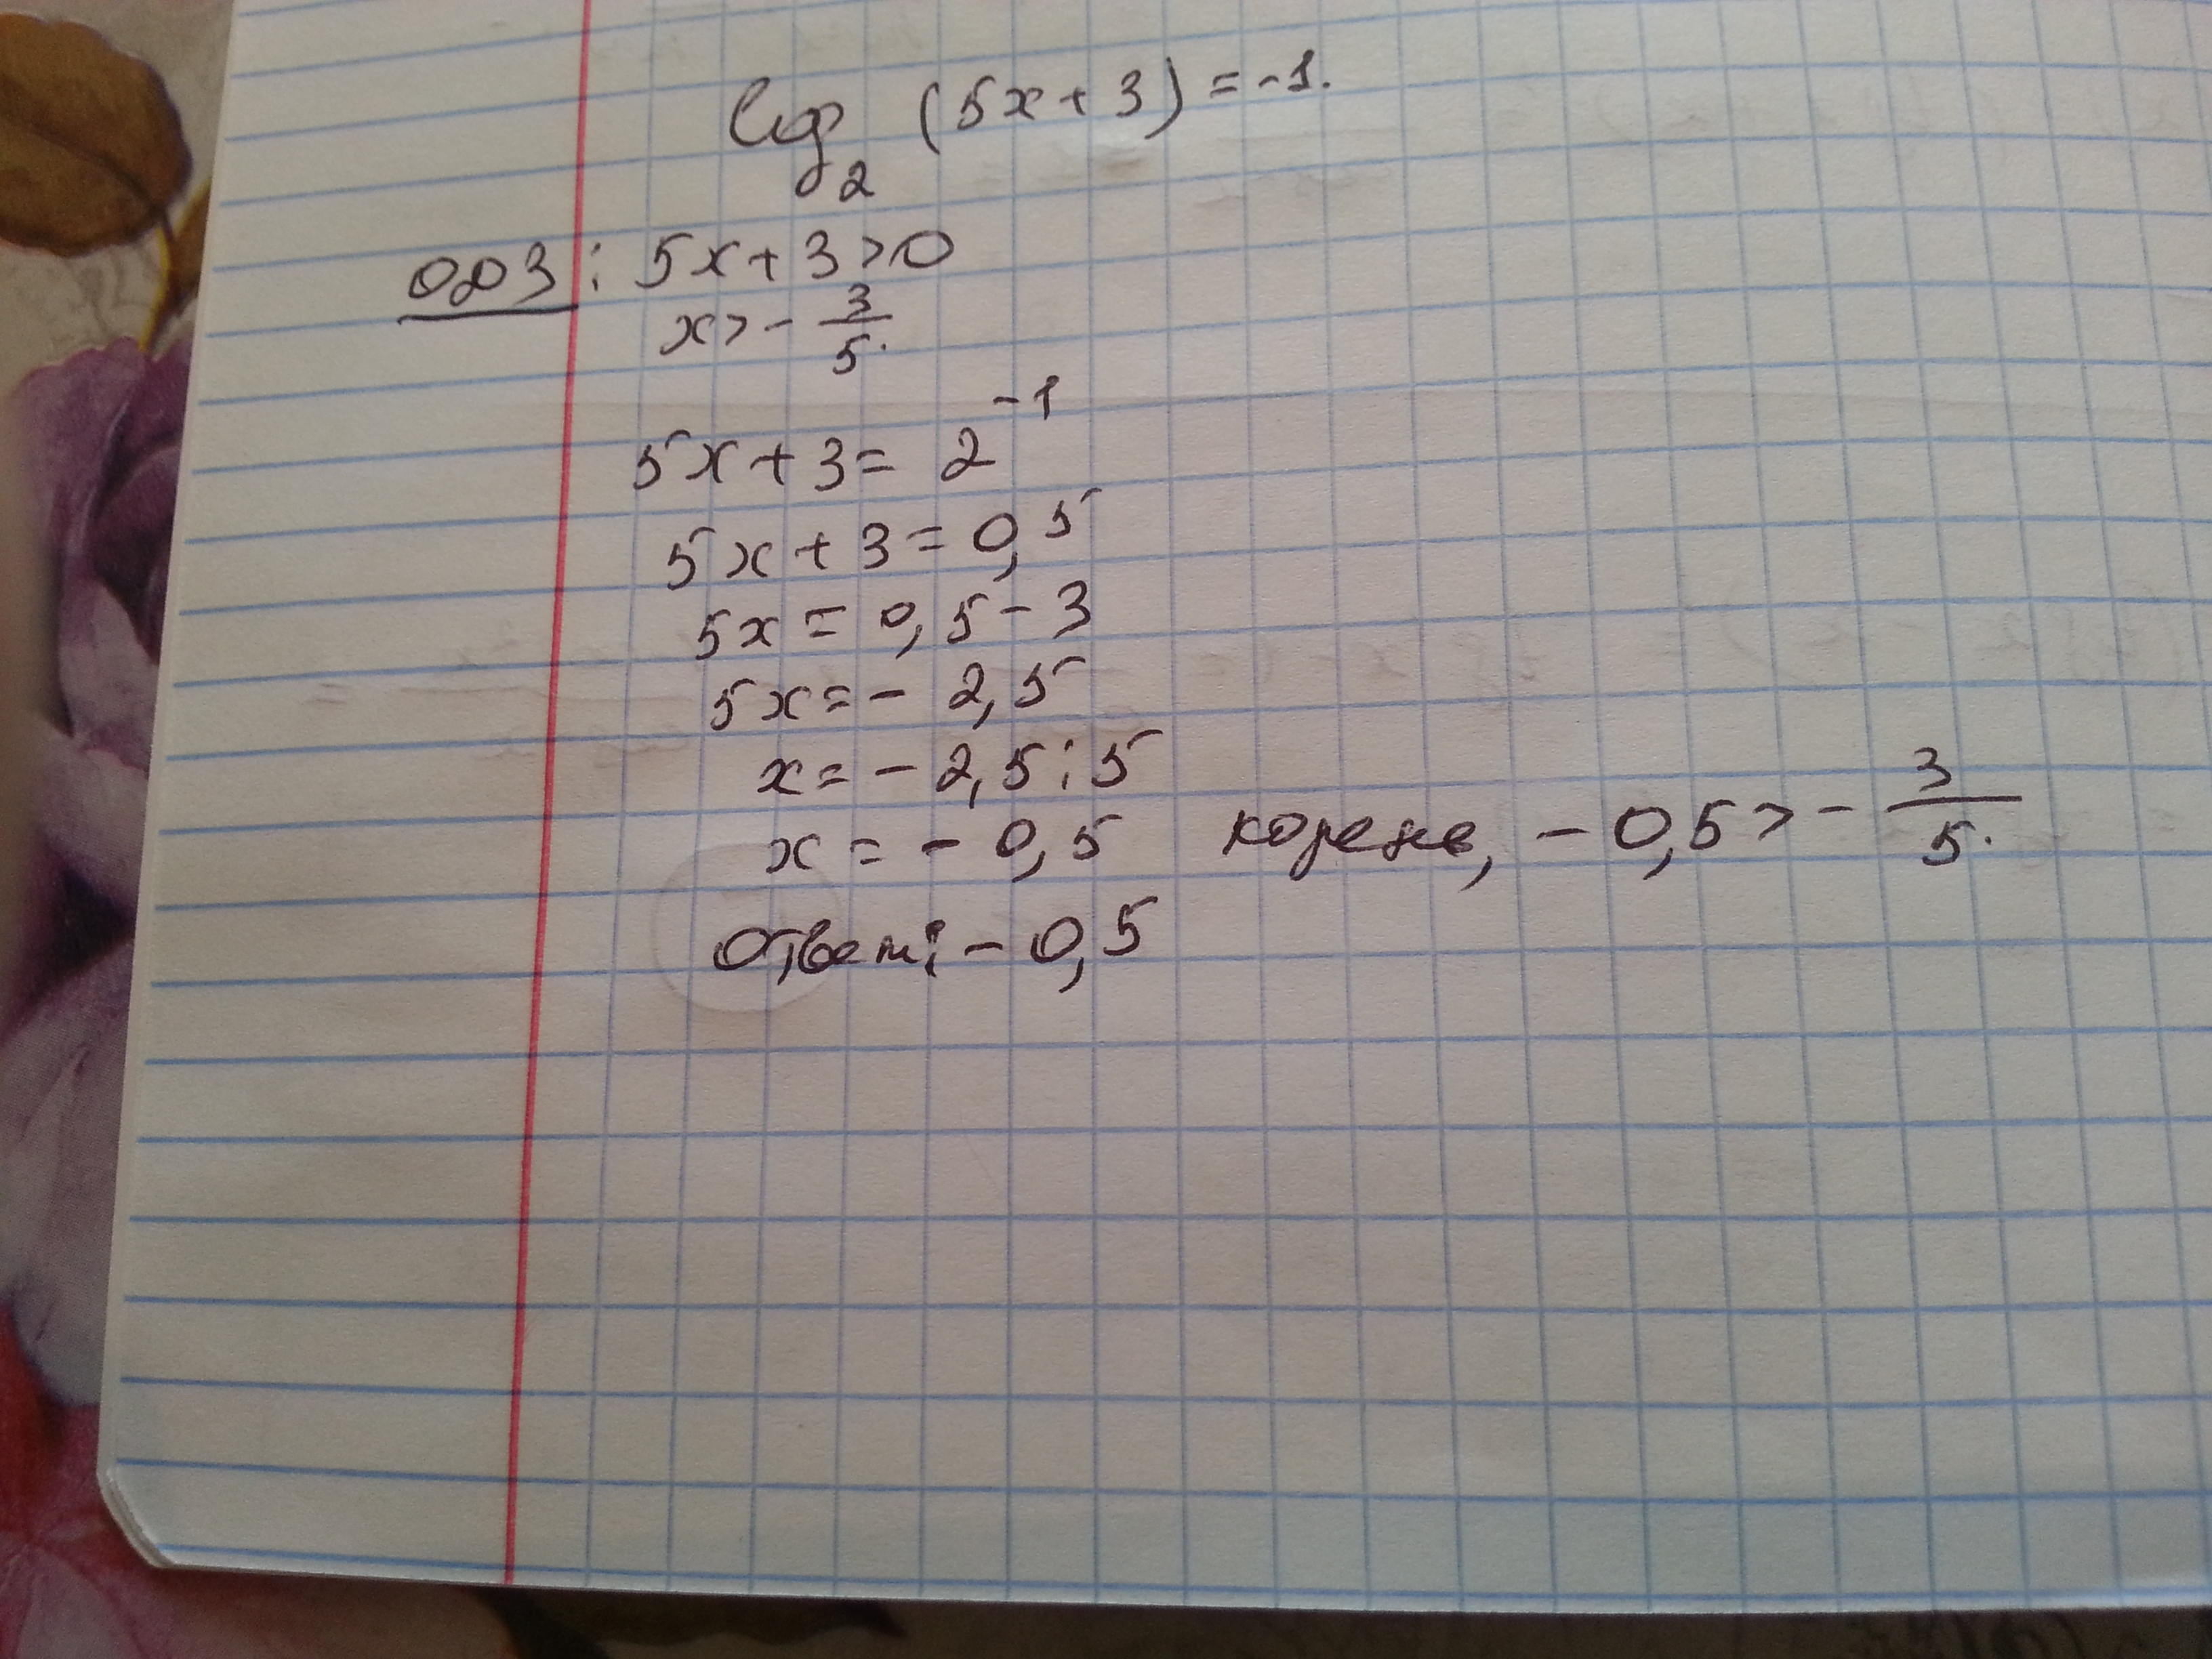 log₂ (5x+3) = -1.
ОДЗ: 5x+3>0
x>-3/5.
5x+3=2⁻¹
5x+3=0,5
5x=0,5-3
5x=-2,5
x=-2,5:5
x=-0,5 корень, -0,5>-3/5.
Ответ: -0,5